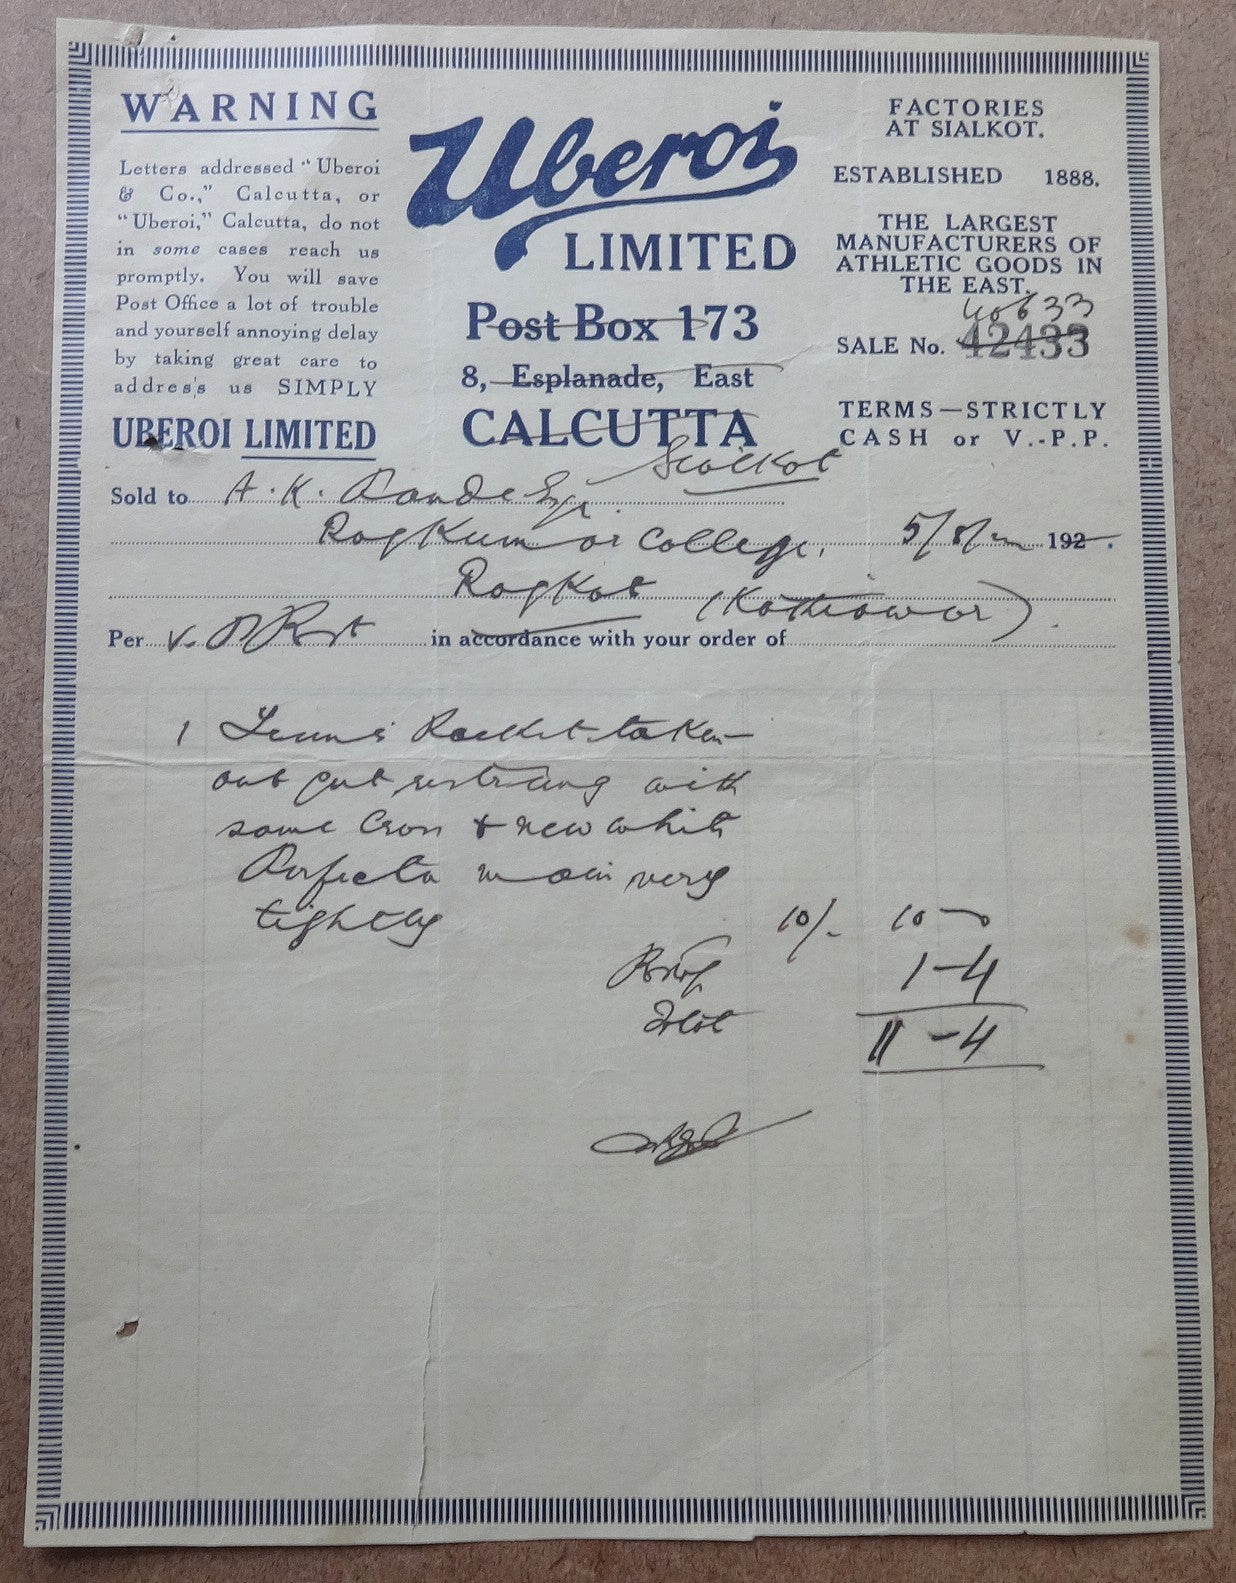 WARNING
Letters addressed "Uberoi
& Co.," Calcutta, or
"Uberoi," Calcutta, do not
in some cases reach us
promptly. You will save
Post Office a lot of trouble
and yourself annoying delay
by taking great care to
address us SIMPLY
UBEROI LIMITED
Uberoi
LIMITED
Post Box 173
8, Esplanade, East
CALCUTTA
Sialkot
FACTORIES
AT SIALKOT.
ESTABLISHED 1888.
THE LARGEST
MANUFACTURERS OF
ATHLETIC GOODS IN
THE EAST.
40633
SALE No. 42433
TERMS—STRICTLY
CASH or V.-P.P.
Sold to A. K. Esqr.
Rajkumar College, 192 .
Rajkot (Kathiawar).
Per in accordance with your order of
1 Tennis Racket taken
out gut restrung with
same Cross & new white
Perfecta main very
tightly
10/- 10-0
1-4
11-4